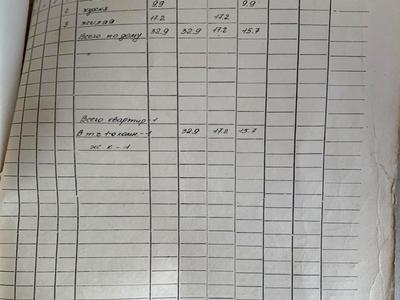 2 кухня 9.9 9.9
3 жилая 17.2 17.2
Всего по дому 32.9 32.9 17.2 15.7
Всего квартир - 1
В т.ч. 1о комн. - 1 32.9 17.2 15.7
ж. к - 1